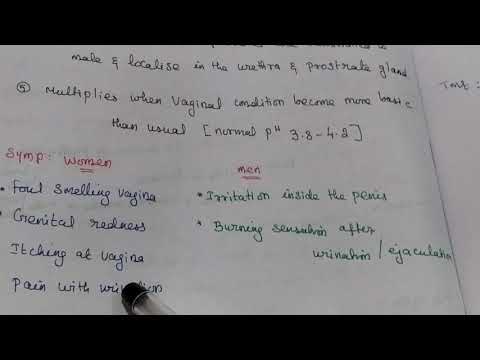 male & localise in the urethra & prostrate gland
⑤ Multiplies when Vaginal condition become more basic
than usual [normal pH 3.8-4.2]
Symp: Women
• Foul smelling vagina
• Genital redness
Itching at vagina
Pain with urination
men
• Irritation inside the penis
• Burning sensation after
urination / ejaculation
Tmt :